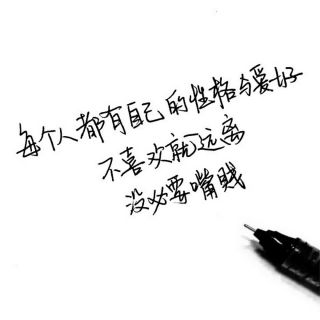 每个人都有自己的性格与爱好
不喜欢就远离
没必要嘴贱